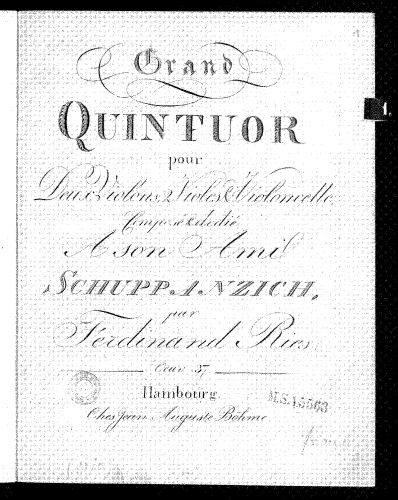 1
Grand
QUINTUOR
pour
Deux Violons, 2 Violes & Violoncelle
Composé & dedié
A son Ami
SCHUPPANZICH,
par
Ferdinand Ries
Oeuv. 37
Hambourg.
Chez Jean Auguste Böhme
M.S.15563